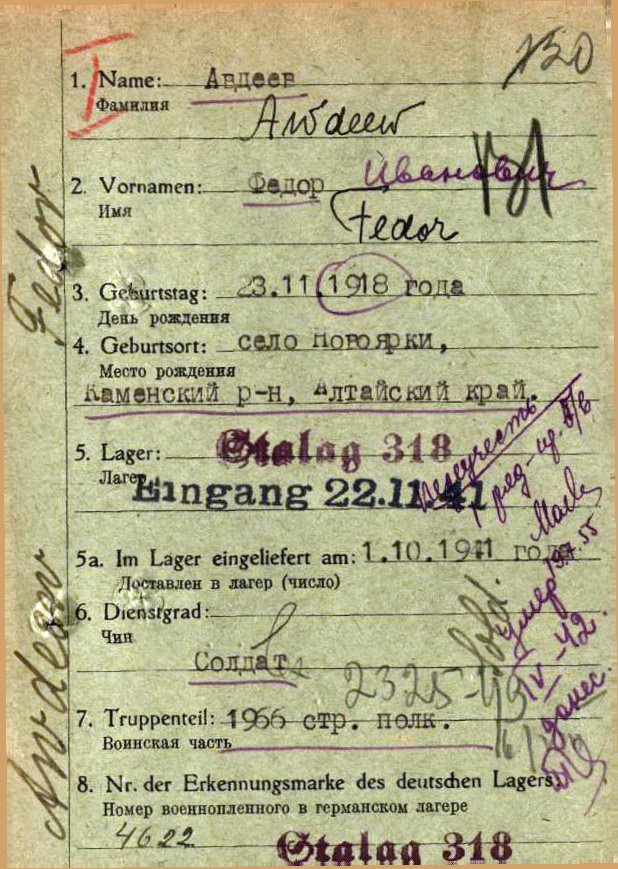 130
I
1. Name: Авдеев
Фамилия
Awdeew
2. Vornamen: Федор Иванович
Имя
Fedor
3. Geburtstag: 23.11.1918 года
День рождения
4. Geburtsort: село Новоярки,
Место рождения
Каменский р-н, Алтайский край.
5. Lager: Stalag 318
Лагерь
Eingang 22.11.41
5a. Im Lager eingeliefert am: 1.10.1941 года
Доставлен в лагерь (число)
6. Dienstgrad:
Чин
Солдат
2325-49
7. Truppenteil: 1966 стр. полк.
Воинская часть
8. Nr. der Erkennungsmarke des deutschen Lagers:
Номер военнопленного в германском лагере
4622
Stalag 318
Fedor
Awdeew
Умер
IV-42
донес.